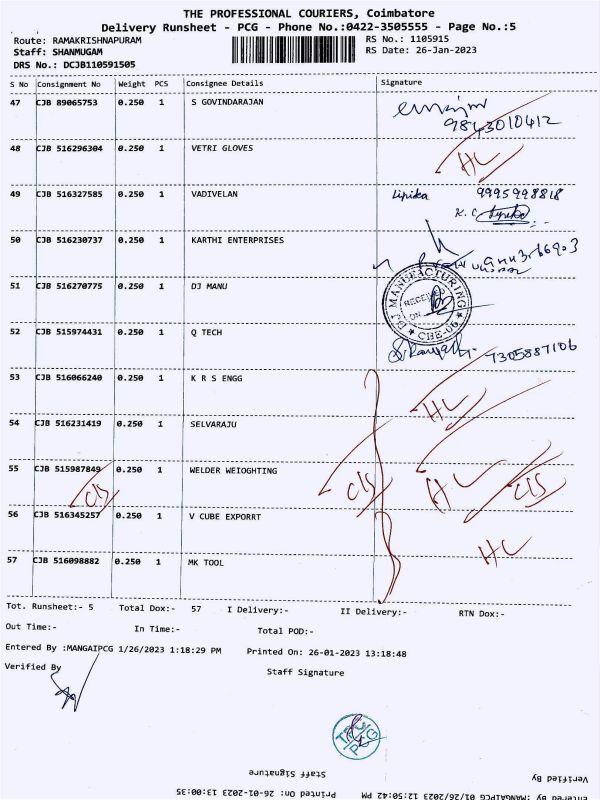 THE PROFESSIONAL COURIERS, Coimbatore
Delivery Runsheet - PCG - Phone No.:0422-3505555 - Page No.:5
Route: RAMAKRISHNAPURAM
Staff: SHANMUGAM
DRS No.: DCJB110591505
RS No.: 1105915
RS Date: 26-Jan-2023
S No Consignment No Weight PCS Consignee Details Signature
47 CJB 89065753 0.250 1 S GOVINDARAJAN
9843010412
48 CJB 516296304 0.250 1 VETRI GLOVES HL
49 CJB 516327585 0.250 1 VADIVELAN Lipika 9995998818
K. C
50 CJB 516230737 0.250 1 KARTHI ENTERPRISES
51 CJB 516270775 0.250 1 DJ MANU
DJ MANUFACTURING
RECEIVED
ON
★ CBE-06 ★
52 CJB 515974431 0.250 1 Q TECH 7305887106
53 CJB 516066240 0.250 1 K R S ENGG HL
54 CJB 516231419 0.250 1 SELVARAJU
55 CJB 515987849 0.250 1 WELDER WEIOGHTING HL
56 CJB 516345257 0.250 1 V CUBE EXPORRT HL
57 CJB 516098882 0.250 1 MK TOOL
Tot. Runsheet:- 5 Total Dox:- 57 I Delivery:- II Delivery:- RTN Dox:-
Out Time:- In Time:- Total POD:-
Entered By :MANGAIPCG 1/26/2023 1:18:29 PM Printed On: 26-01-2023 13:18:48
Verified By Staff Signature
Staff Signature Verified By
Printed On: 26-01-2023 13:00:35 Entered By :MANGAIPCG 01/26/2023 12:50:42 PM